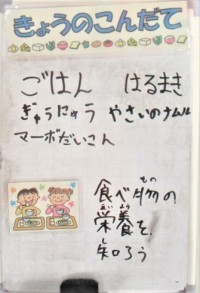 きょうのこんだて
ごはん　はるまき
ぎゅうにゅう　やさいのナムル
マーボだいこん
食べ物の
もの
栄養を
えいよう
知ろう
し